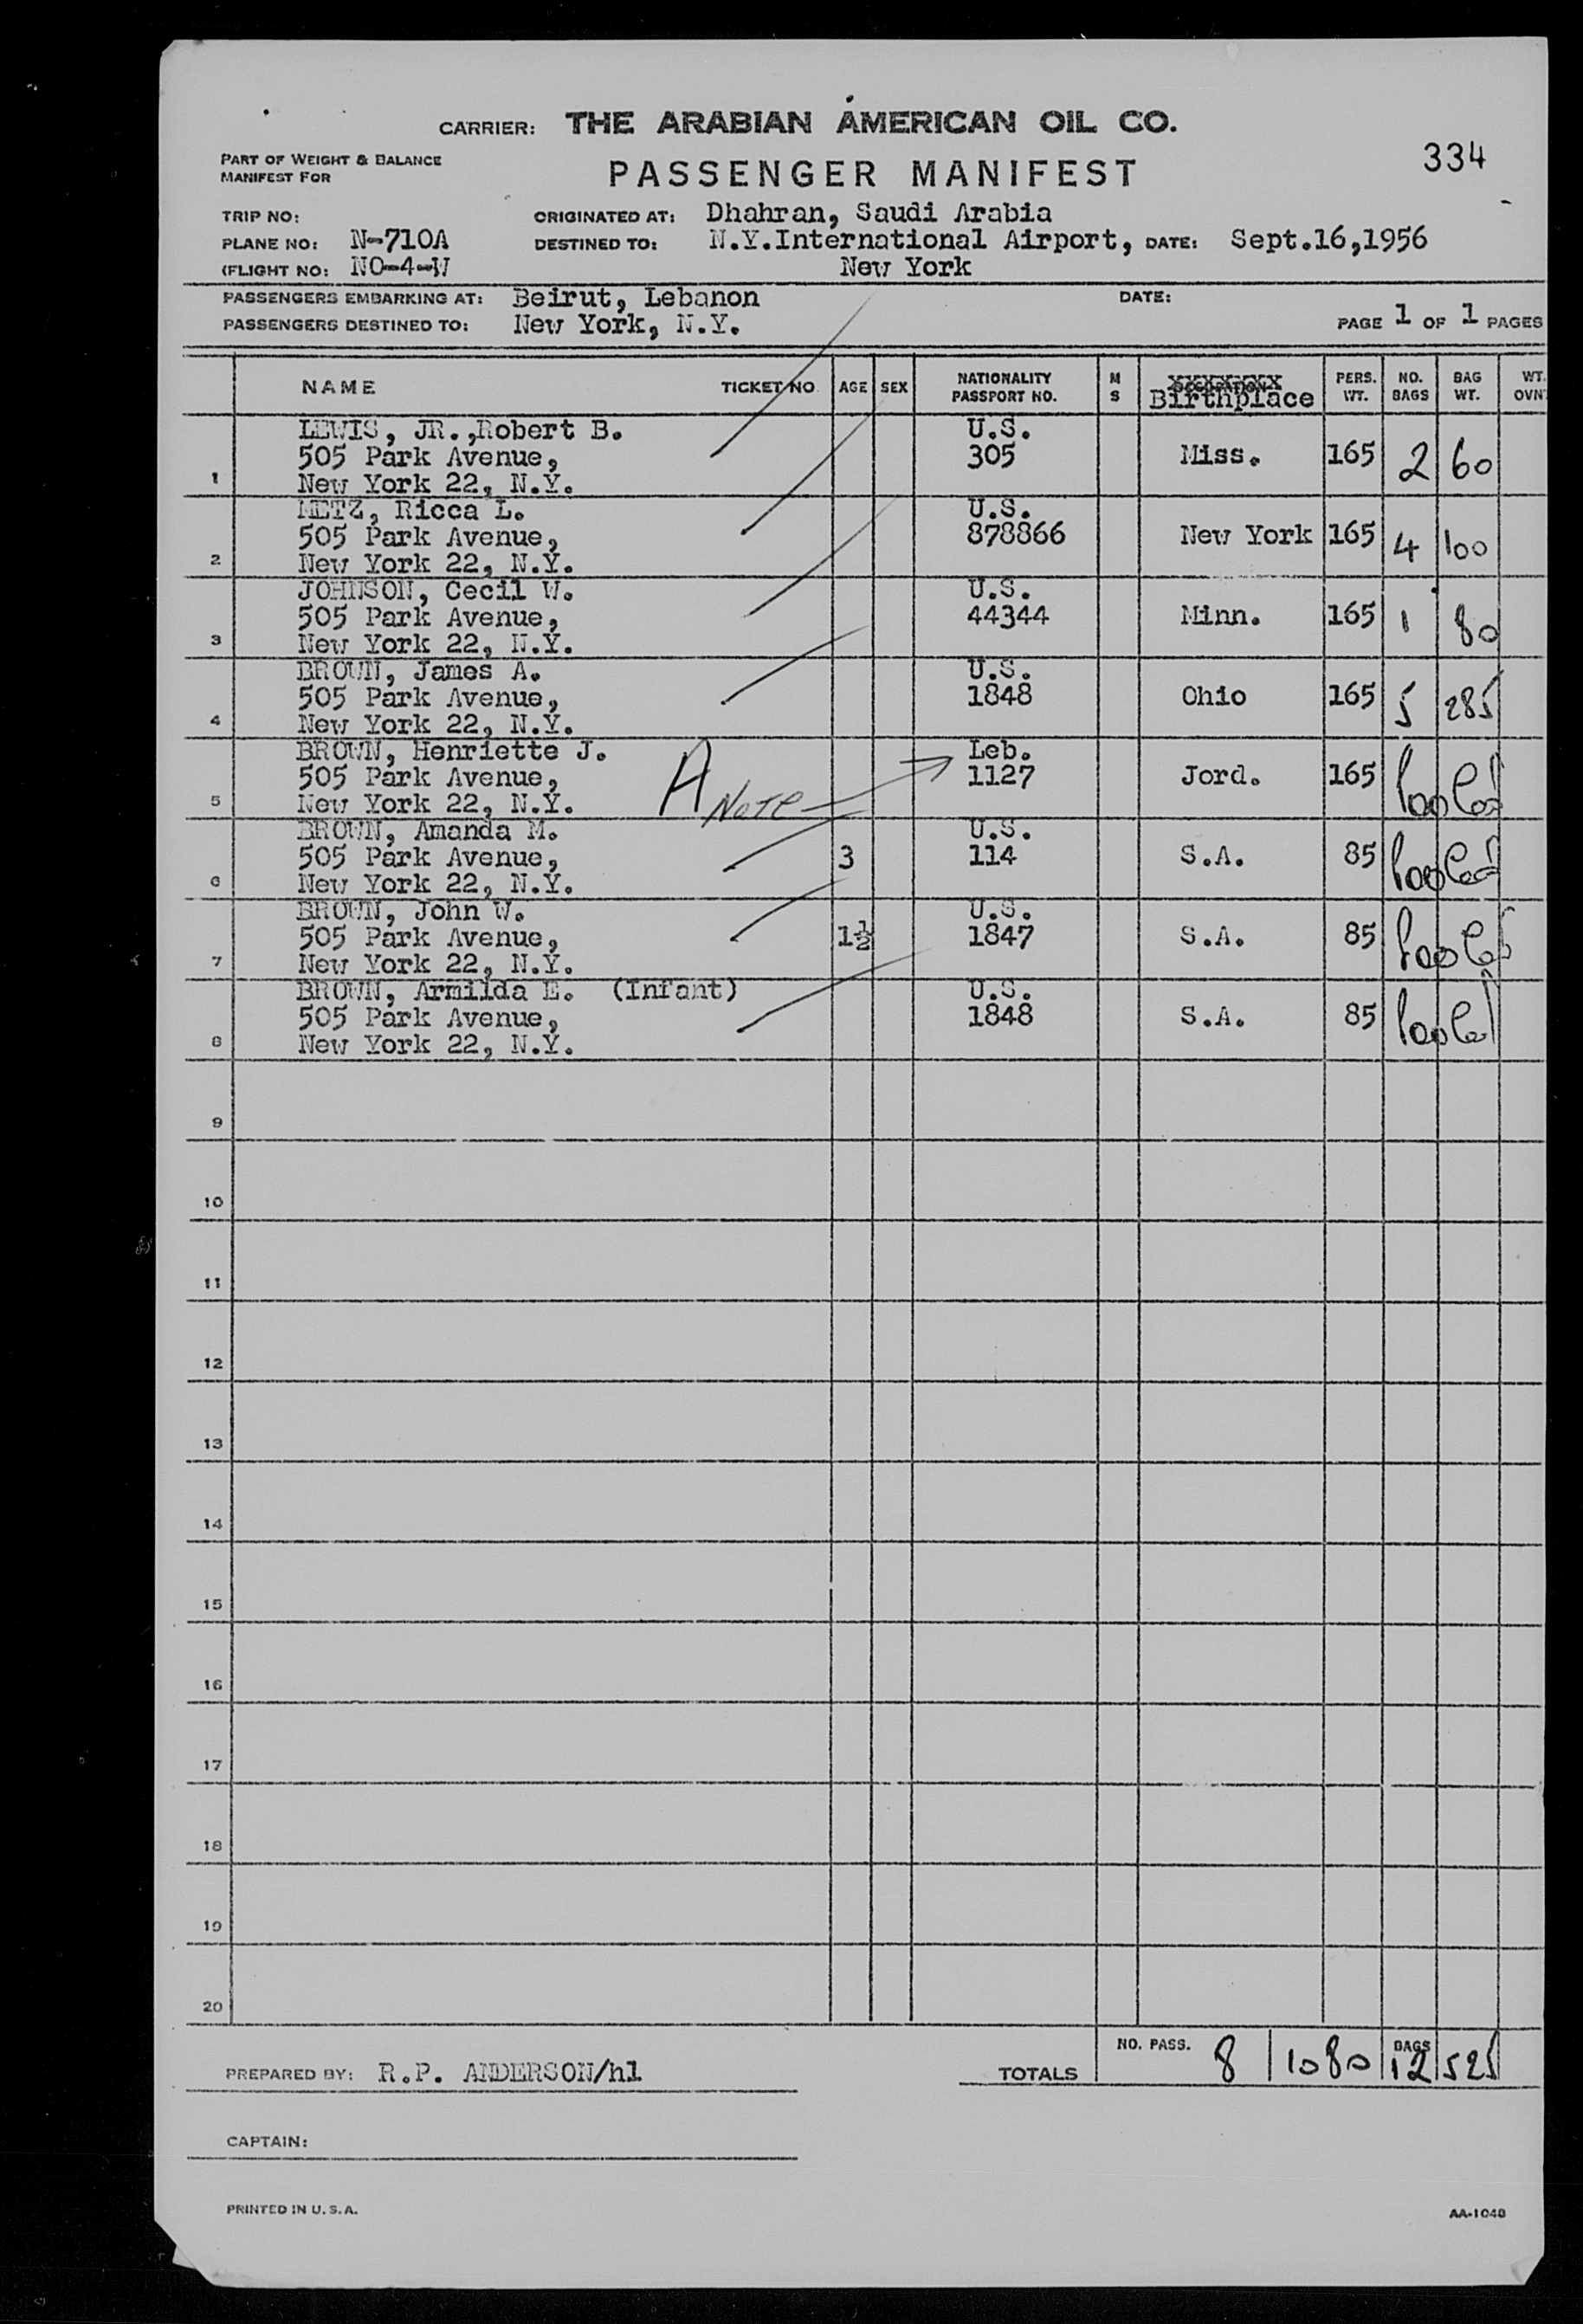 CARRIER: THE ARABIAN AMERICAN OIL CO.
PART OF WEIGHT & BALANCE
MANIFEST FOR
PASSENGER MANIFEST
334
TRIP NO:
ORIGINATED AT: Dhahran, Saudi Arabia
PLANE NO: N-710A
DESTINED TO: N.Y.International Airport, DATE: Sept.16,1956
(FLIGHT NO: NO-4-W
New York
PASSENGERS EMBARKING AT: Beirut, Lebanon
DATE:
PASSENGERS DESTINED TO: New York, N.Y.
PAGE 1 OF 1 PAGES
NAME TICKET NO AGE SEX NATIONALITY PASSPORT NO. M S Birthplace PERS. WT. NO. BAGS BAG WT. WT. OVN
LEWIS, JR.,Robert B. U.S.
505 Park Avenue, 305 Miss. 165 2 60
1 New York 22, N.Y.
METZ, Ricca L. U.S.
505 Park Avenue, 878866 New York 165 4 100
2 New York 22, N.Y.
JOHNSON, Cecil W. U.S.
505 Park Avenue, 44344 Minn. 165 1 80
3 New York 22, N.Y.
BROWN, James A. U.S.
505 Park Avenue, 1848 Ohio 165 5 285
4 New York 22, N.Y.
BROWN, Henriette J. Leb.
505 Park Avenue, A NOTE 1127 Jord. 165 Pooled
5 New York 22, N.Y.
BROWN, Amanda M. U.S.
505 Park Avenue, 3 114 S.A. 85 Pooled
6 New York 22, N.Y.
BROWN, John W. U.S.
505 Park Avenue, 1½ 1847 S.A. 85 Pooled
7 New York 22, N.Y.
BROWN, Armilda E. (Infant) U.S.
505 Park Avenue, 1848 S.A. 85 Pooled
8 New York 22, N.Y.
9
10
11
12
13
14
15
16
17
18
19
20
PREPARED BY: R.P. ANDERSON/hl
TOTALS NO. PASS. 8 1080 BAGS 12 525
CAPTAIN:
PRINTED IN U.S.A.
AA-1048